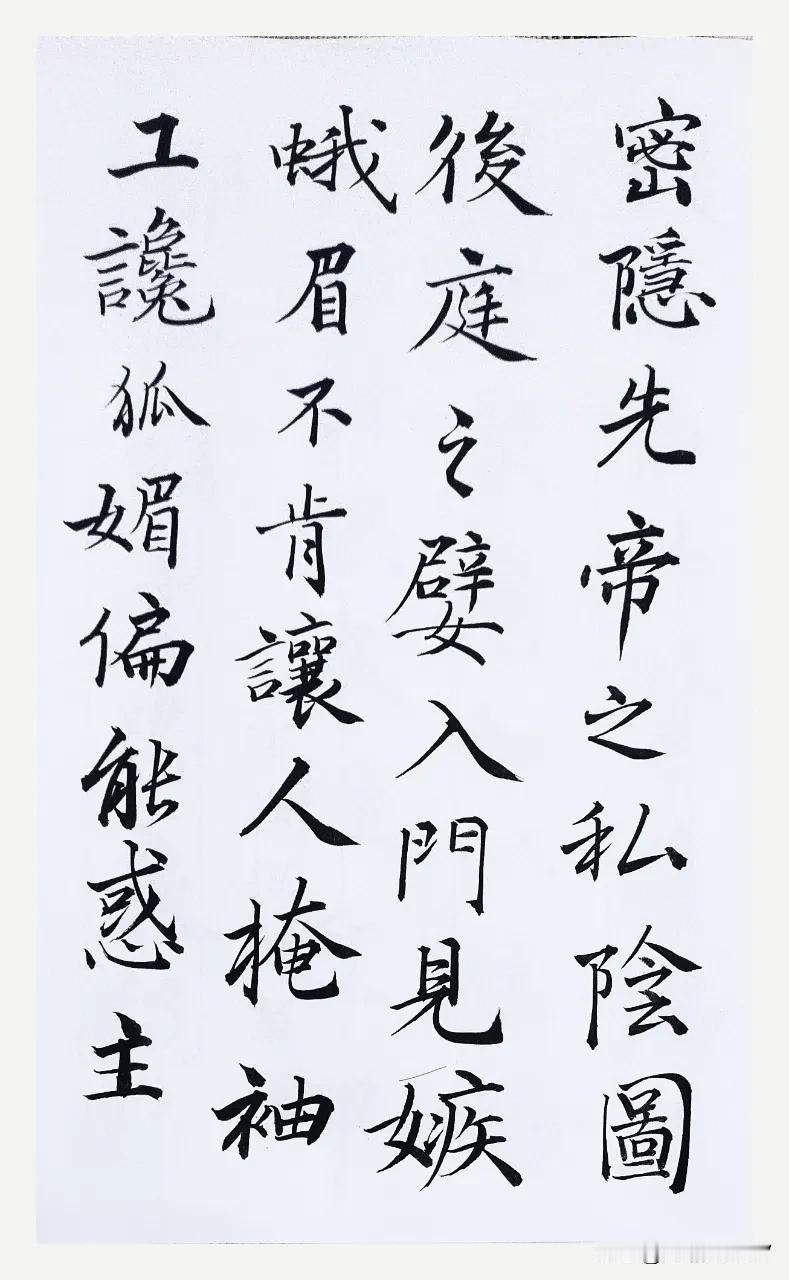 密隱先帝之私陰圖
後庭之嬖入門見嫉
蛾眉不肯讓人掩袖
工讒狐媚偏能惑主